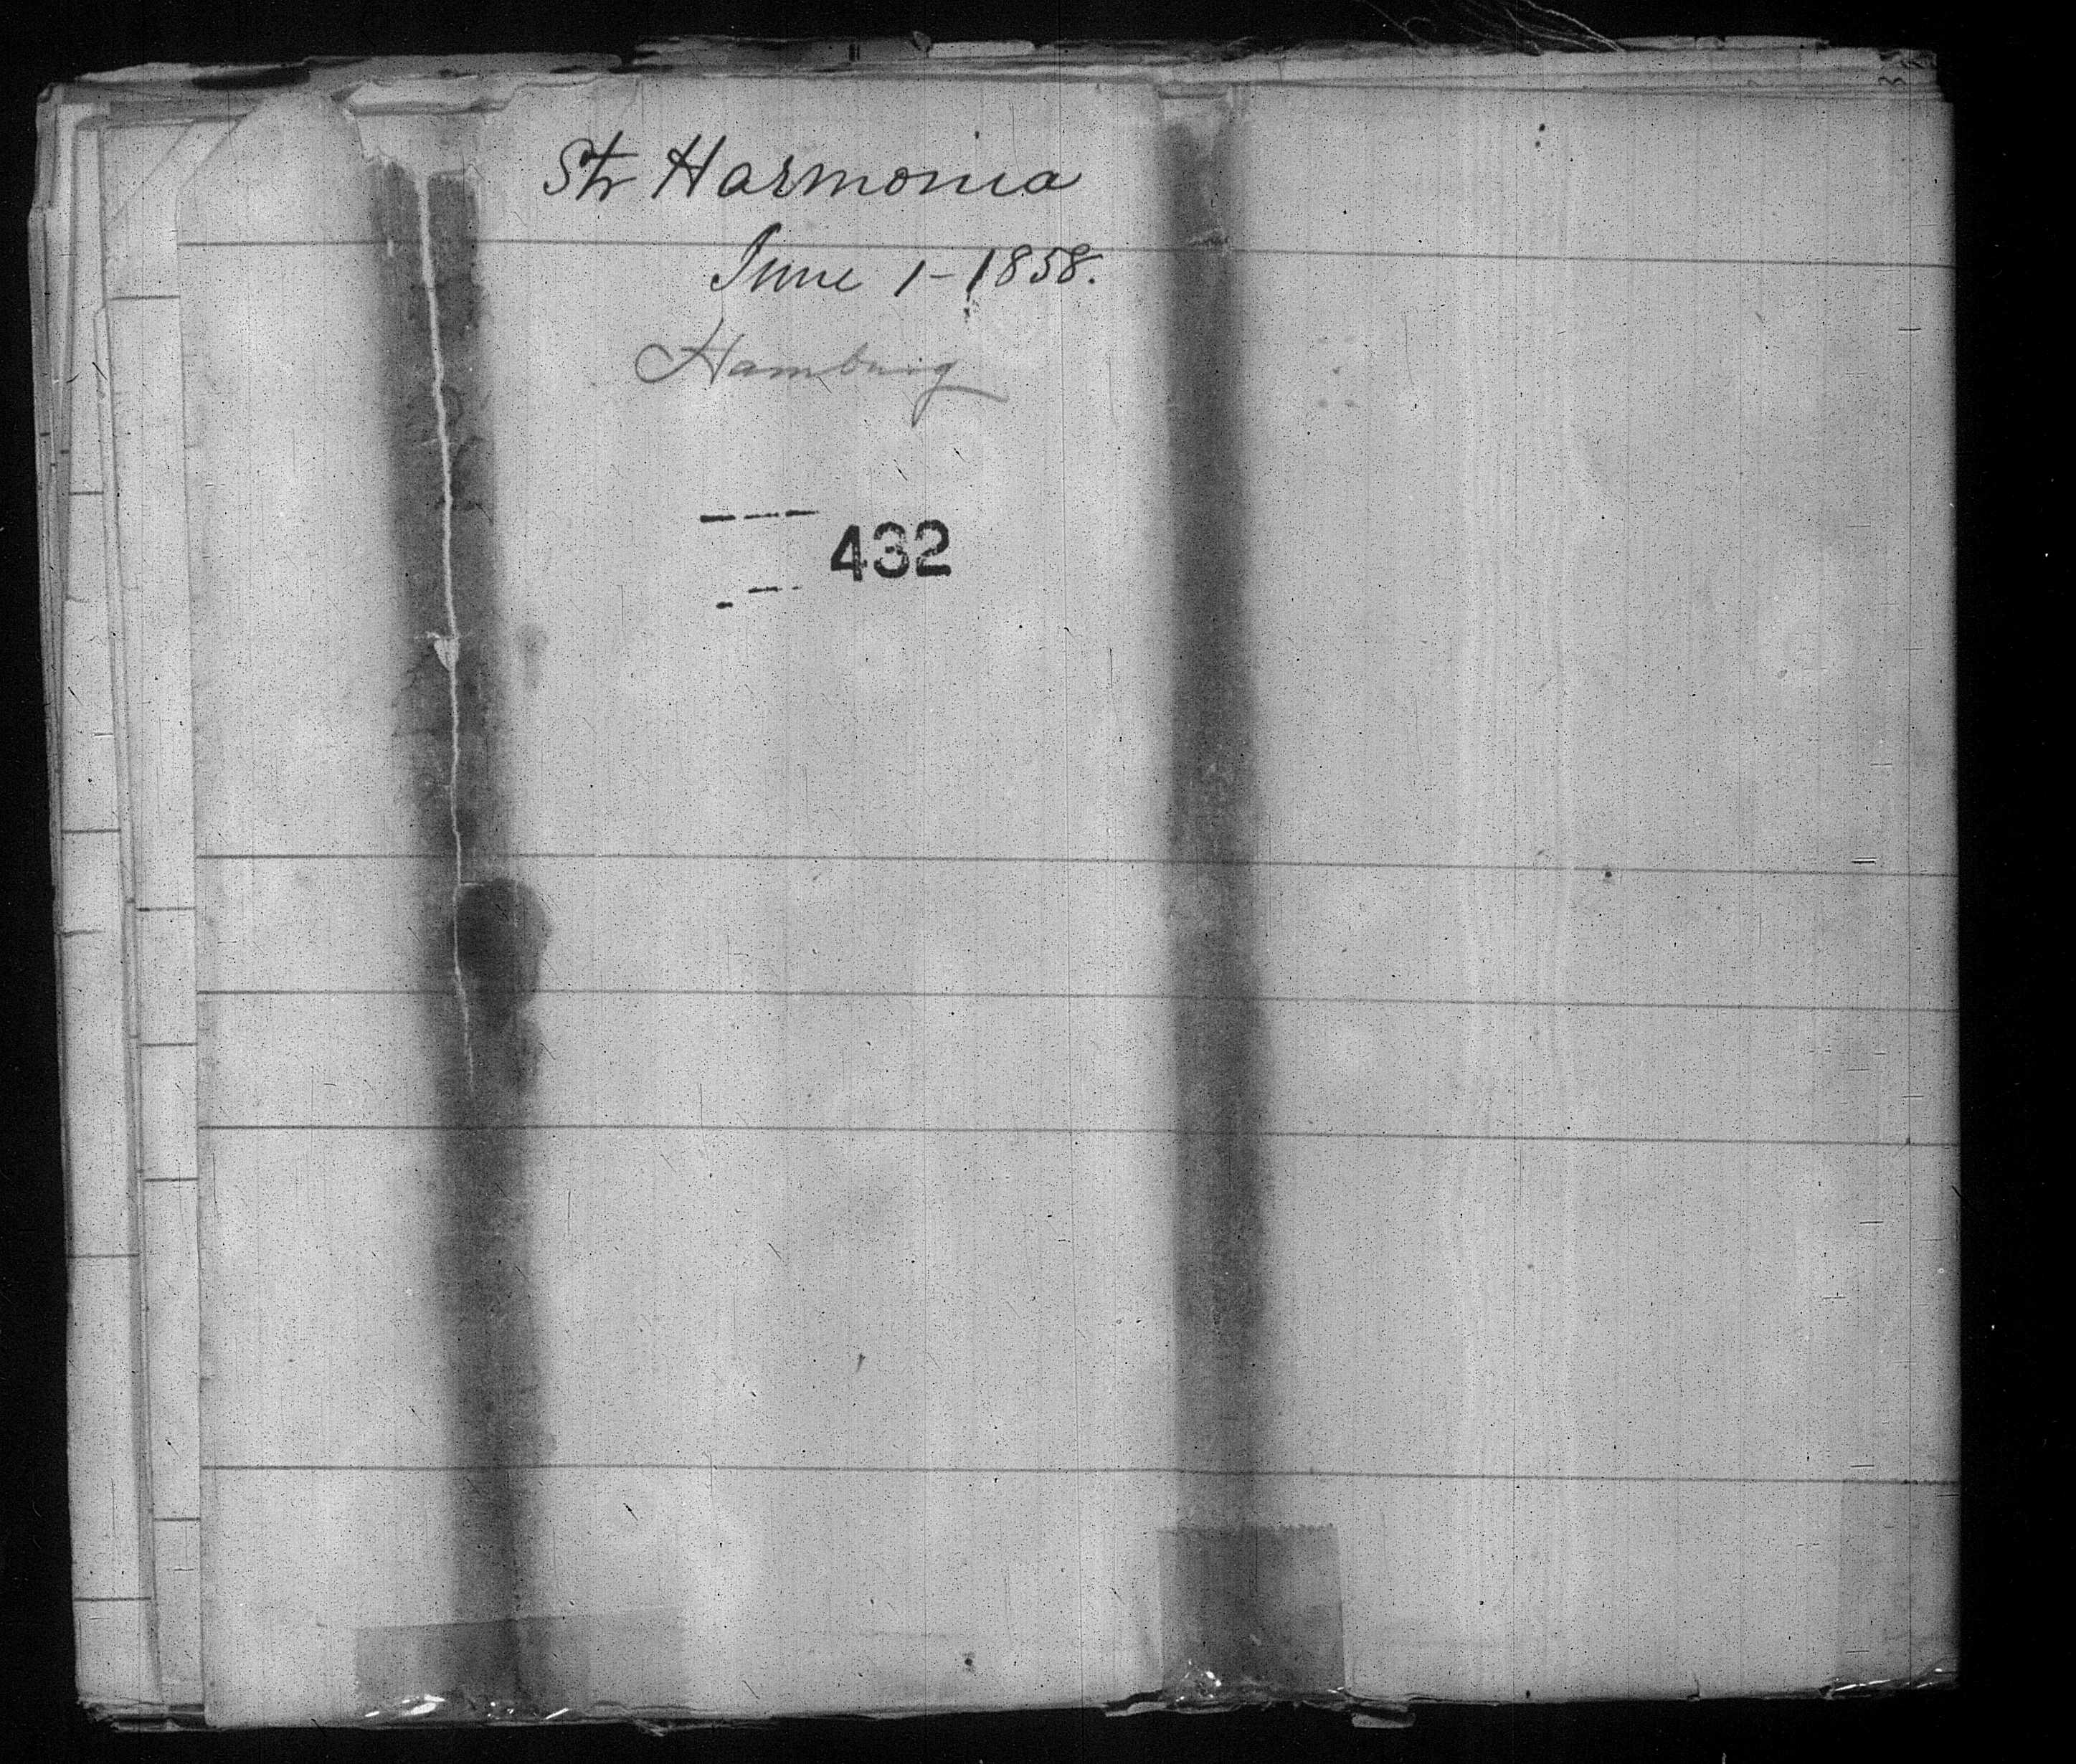 Str Harmonia
June 1-1858.
Hamburg
432